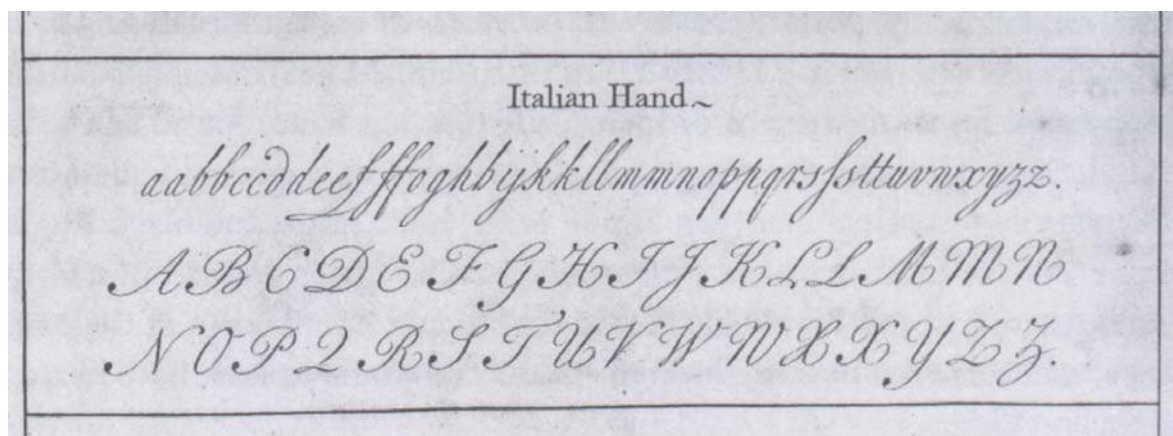 Italian Hand~
aabbccddeefffoghhijkkllmmnoppqrsfsttuvwxyzz.
A B C D E F G H I J K L L M M N
N O P Q R S T U V W W X X Y Z Z.